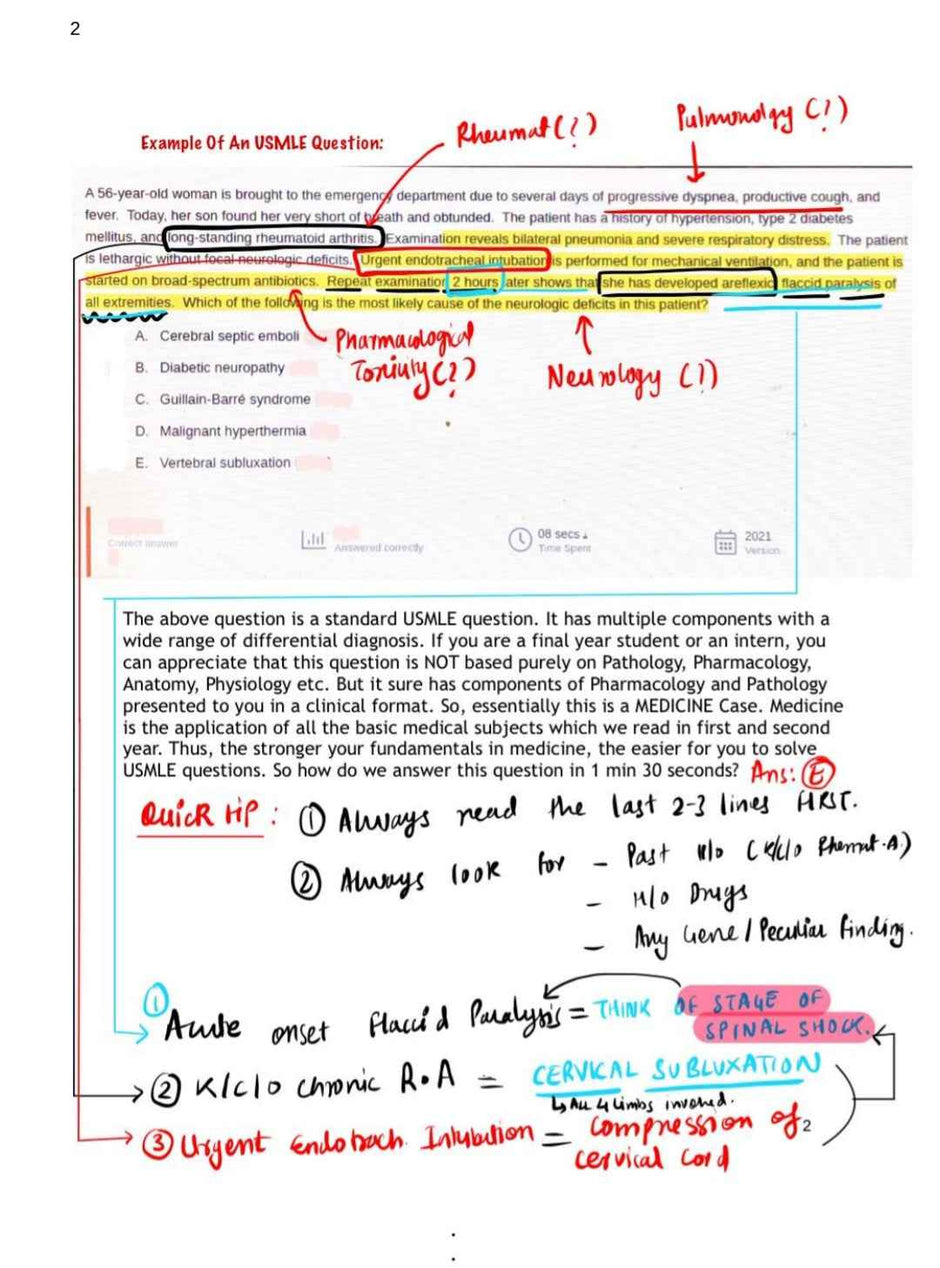 2
Rheumat (?)
Pulmonolgy (?)
Example Of An USMLE Question:
A 56-year-old woman is brought to the emergency department due to several days of progressive dyspnea, productive cough, and
fever. Today, her son found her very short of breath and obtunded. The patient has a history of hypertension, type 2 diabetes
mellitus, and long-standing rheumatoid arthritis. Examination reveals bilateral pneumonia and severe respiratory distress. The patient
is lethargic without focal neurologic deficits. Urgent endotracheal intubation is performed for mechanical ventilation, and the patient is
started on broad-spectrum antibiotics. Repeat examination 2 hours later shows that she has developed areflexic flaccid paralysis of
all extremities. Which of the following is the most likely cause of the neurologic deficits in this patient?
A. Cerebral septic emboli
B. Diabetic neuropathy
C. Guillain-Barré syndrome
D. Malignant hyperthermia
E. Vertebral subluxation
Pharmacological
Toxicity (?)
Neurology (?)
Correct answer
Answered correctly
08 secs
Time Spent
2021
Version
The above question is a standard USMLE question. It has multiple components with a
wide range of differential diagnosis. If you are a final year student or an intern, you
can appreciate that this question is NOT based purely on Pathology, Pharmacology,
Anatomy, Physiology etc. But it sure has components of Pharmacology and Pathology
presented to you in a clinical format. So, essentially this is a MEDICINE Case. Medicine
is the application of all the basic medical subjects which we read in first and second
year. Thus, the stronger your fundamentals in medicine, the easier for you to solve
USMLE questions. So how do we answer this question in 1 min 30 seconds? Ans: E
QUICK TIP : ① Always read the last 2-3 lines FIRST.
② Always look for - Past H/o (K/c/o Rhemat.A.)
- H/o Drugs
- Any Gene / Peculiar finding.
① Acute onset flaccid Paralysis = THINK OF STAGE OF
SPINAL SHOCK.
② K/c/o chronic R.A = CERVICAL SUBLUXATION
↳ All 4 limbs involved.
③ Urgent Endotrach. Intubution = Compression of 2
cervical cord